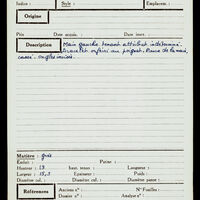 Indice : Style : Emplacem. :
Origine
Prix Date acquis. : Date inv. :
Description Main gauche tenant attribut indéterminé.
Bracelet au poignet. Pouce de la main,
cassé. Ongles incisés.
Matière : grès
Enduit : Patine :
Hauteur : 13 haut. tenon : Longueur :
Largeur : 15,5 Epaisseur : Poids :
Diamètre col. : Diamètre cal. :
Références Anciens nos : No Fouilles :
Dossier : Analyse no :